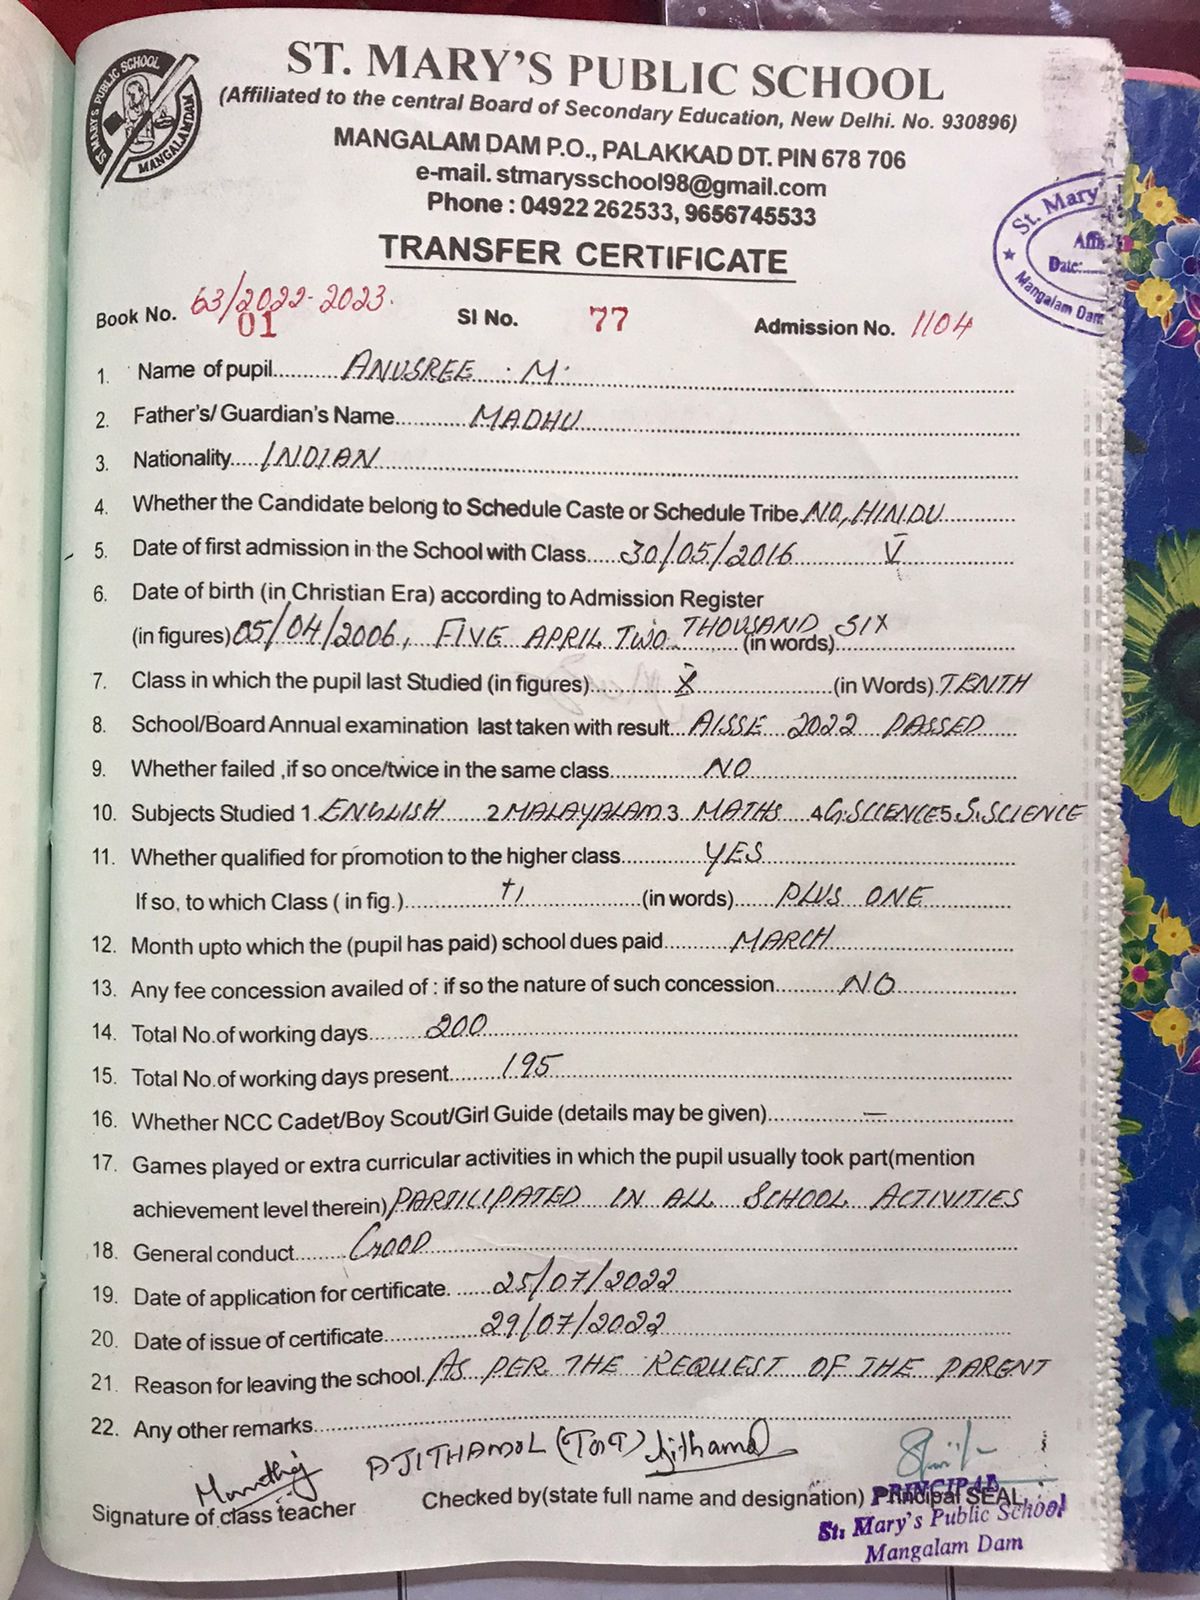 ST. MARY'S PUBLIC SCHOOL
MANGALAMDAM
ST. MARY'S PUBLIC SCHOOL
(Affiliated to the central Board of Secondary Education, New Delhi. No. 930896)
MANGALAM DAM P.O., PALAKKAD DT. PIN 678 706
e-mail. stmarysschool98@gmail.com
Phone : 04922 262533, 9656745533
St. Mary'
Affi
Date:
Mangalam Dam
TRANSFER CERTIFICATE
Book No. 63/2022-2023. SI No. 77 Admission No. 1104
01
1. Name of pupil ANUSREE . M.
2. Father's/ Guardian's Name MADHU
3. Nationality INDIAN
4. Whether the Candidate belong to Schedule Caste or Schedule Tribe NO, HINDU
5. Date of first admission in the School with Class 30/05/2016 V
6. Date of birth (in Christian Era) according to Admission Register
(in figures) 05/04/2006, FIVE APRIL TWO THOUSAND SIX (in words)
7. Class in which the pupil last Studied (in figures) X (in Words) TENTH
8. School/Board Annual examination last taken with result AISSE 2022 PASSED
9. Whether failed ,if so once/twice in the same class NO
10. Subjects Studied 1 ENGLISH 2 MALAYALAM 3 MATHS 4 G.SCIENCE 5 S.SCIENCE
11. Whether qualified for promotion to the higher class YES
If so, to which Class ( in fig.) +1 (in words) PLUS ONE
12. Month upto which the (pupil has paid) school dues paid MARCH
13. Any fee concession availed of : if so the nature of such concession NO
14. Total No.of working days 200
15. Total No.of working days present 195
16. Whether NCC Cadet/Boy Scout/Girl Guide (details may be given) —
17. Games played or extra curricular activities in which the pupil usually took part(mention
achievement level therein) PARTICIPATED IN ALL SCHOOL ACTIVITIES
18. General conduct GOOD
19. Date of application for certificate. 25/07/2022
20. Date of issue of certificate 29/07/2022
21. Reason for leaving the school. AS PER THE REQUEST OF THE PARENT
22. Any other remarks
AJITHAMOL Ajithamol
Signature of class teacher Checked by(state full name and designation) Principal SEAL
PRINCIPAL
St. Mary's Public School
Mangalam Dam